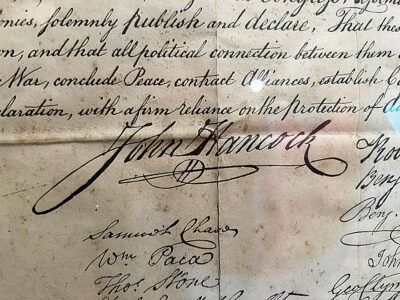 onies, solemnly publish and declare, That these
on, and that all political connection between them
War, conclude Peace, contract Alliances, establish Co
claration, with a firm reliance on the Protection of
John Hancock
Samuel Chase
Wm Paca
Thos Stone
Benj
Benj.
Joh